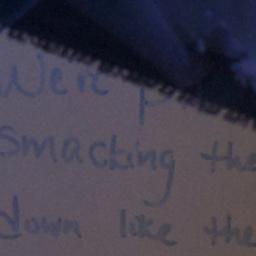 We're p
smacking the
down like the